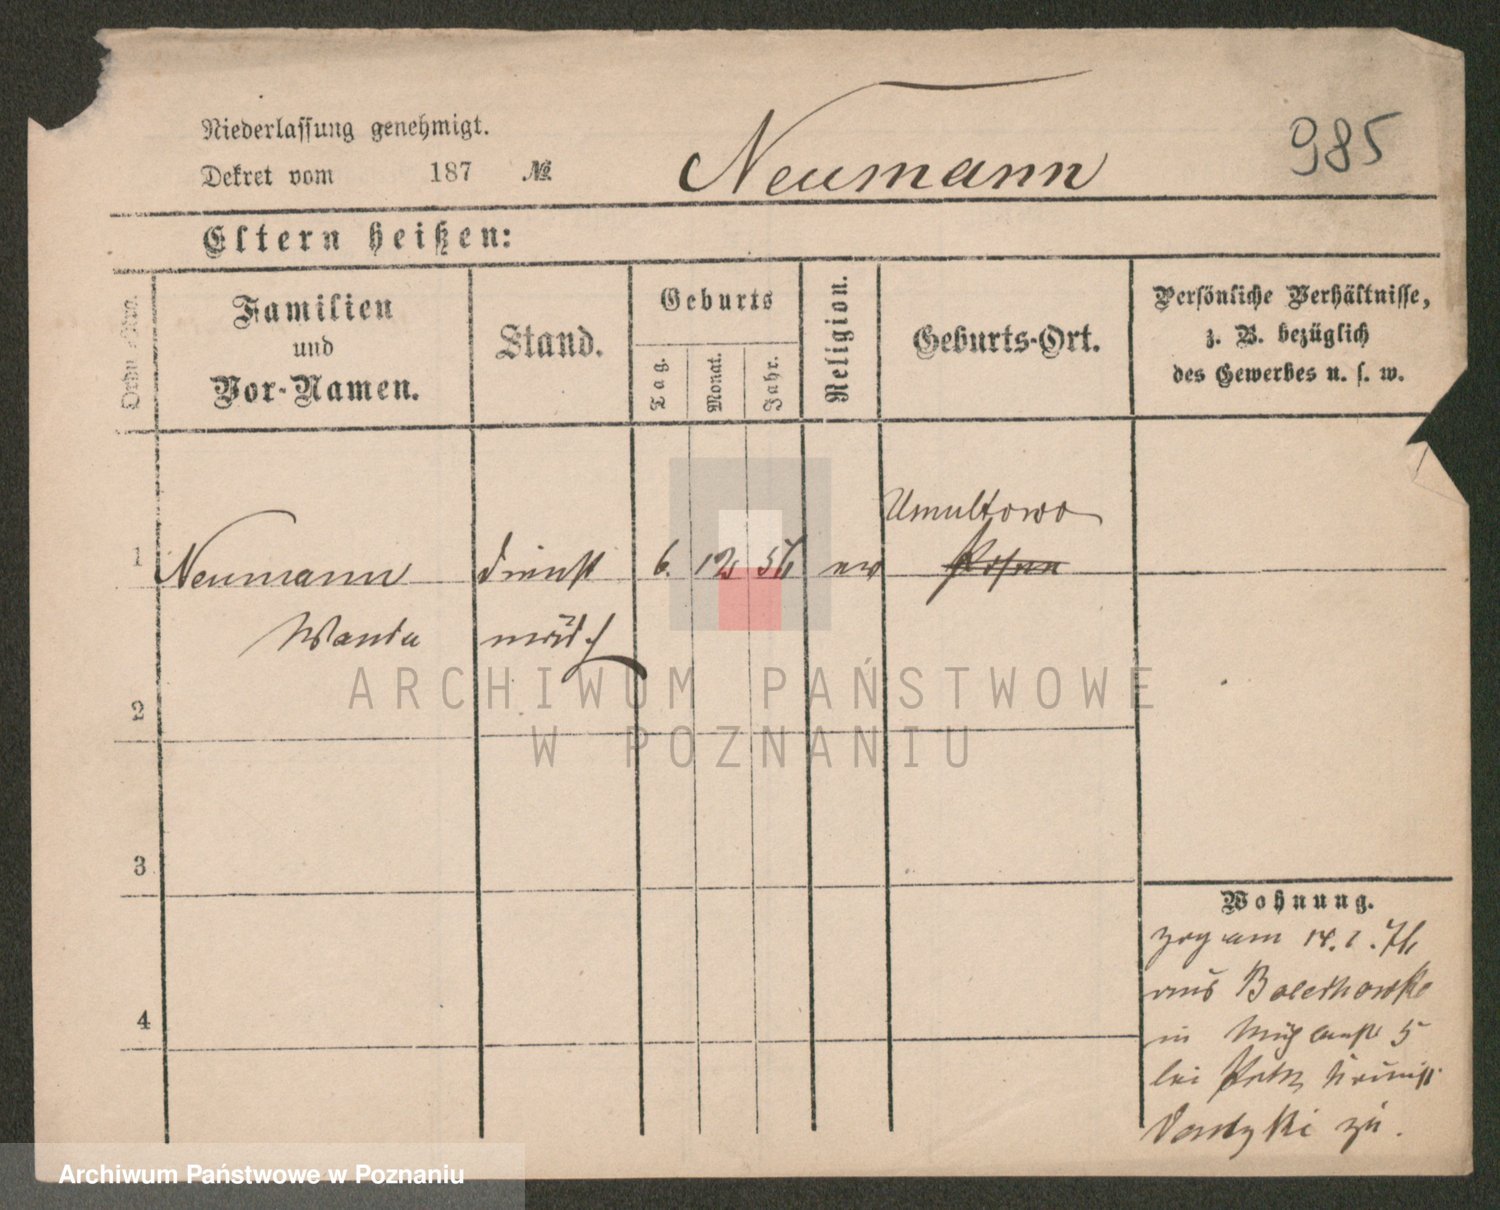 Niederlassung genehmigt.
Dekret vom 187 №
Neumann
985
Eltern heißen:
Ordn. Nro.
Familien
und
Vor-Namen.
Stand.
Geburts
Tag.
Monat.
Jahr.
Religion.
Geburts-Ort.
Persönliche Verhältnisse,
z. B. bezüglich
des Gewerbes u. s. w.
Umultowo
1 Neumann dienst 6. 12 56 ew Posen
Wanda mädch
2
3
4
Wohnung.
zog am 14. 1. 76
aus
in 5
bei
zu.
ARCHIWUM PAŃSTWOWE
W POZNANIU
Archiwum Państwowe w Poznaniu